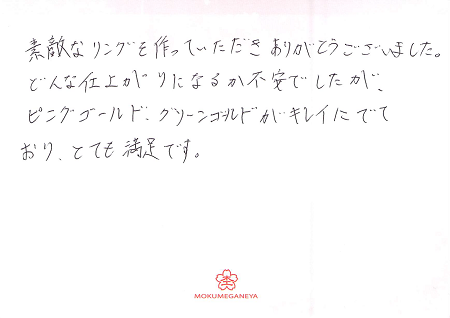 素敵なリングを作っていただきありがとうございました。
どんな仕上がりになるか不安でしたが、
ピンクゴールド、グリーンゴールドがキレイにでて
おり、とても満足です。
MOKUMEGANEYA